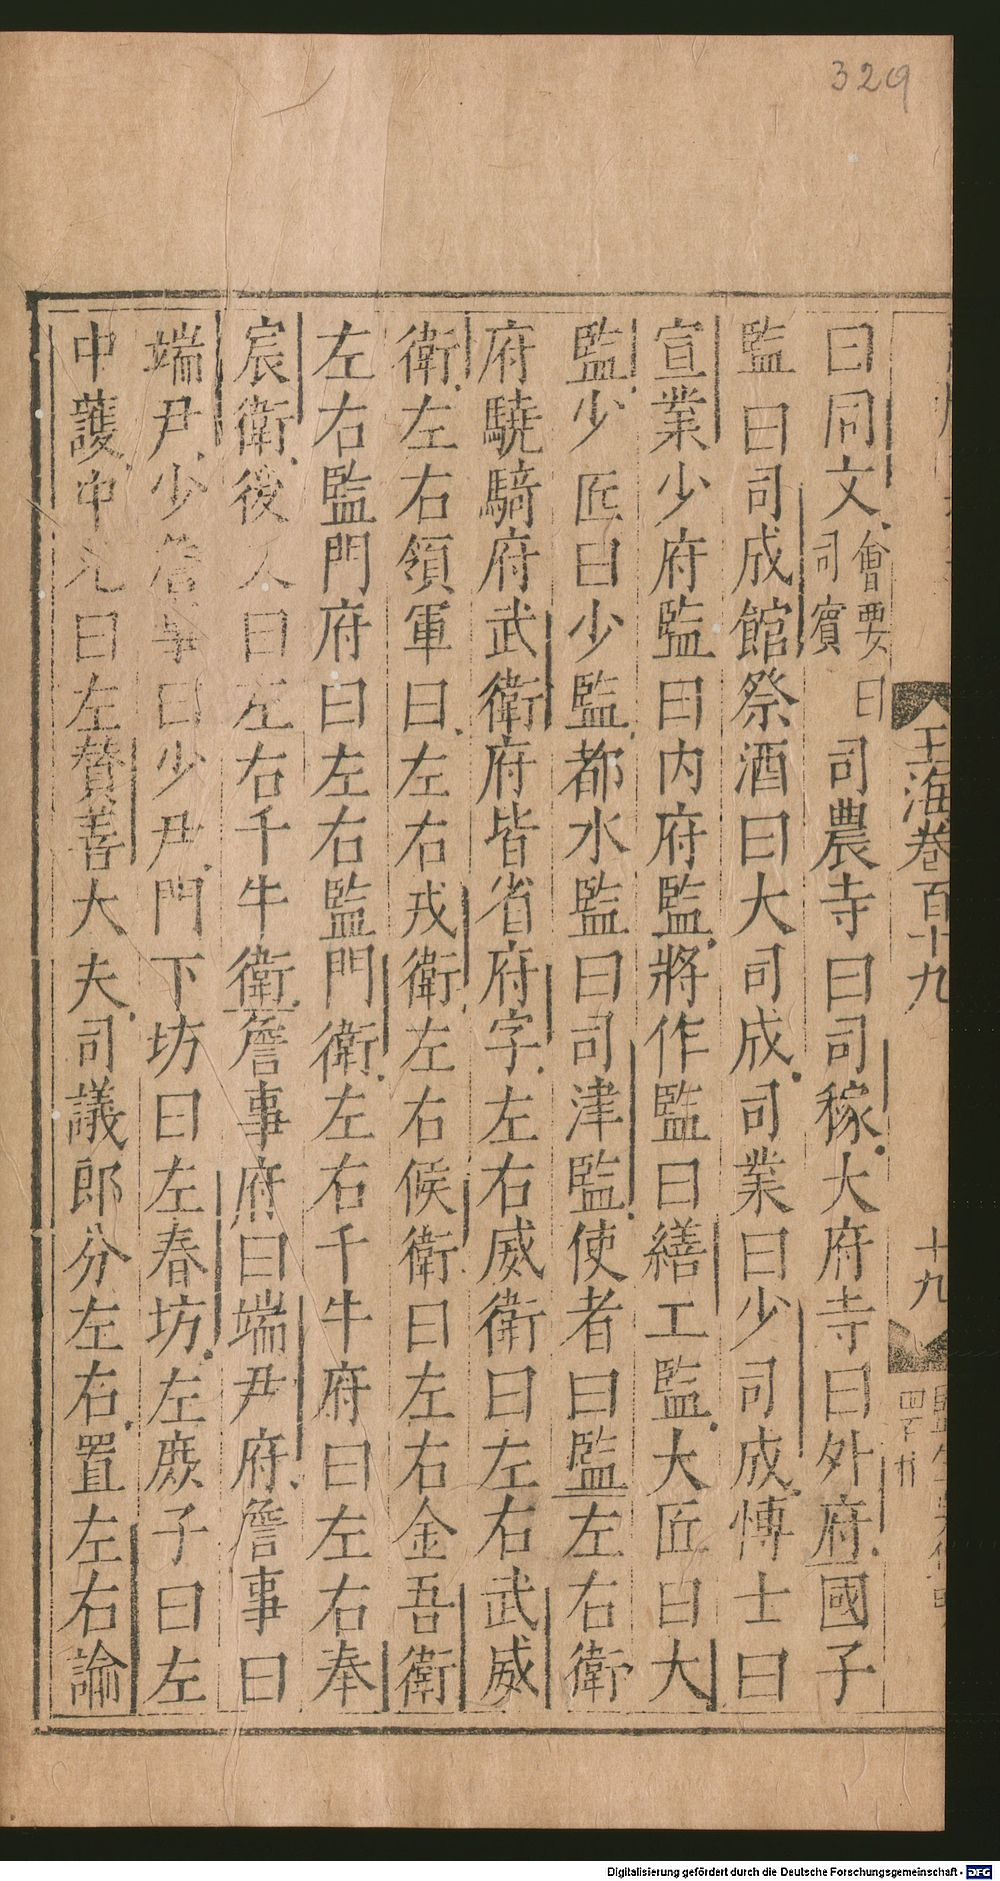 329
玉海卷百十九
十九
曰同文會要曰司賓司農寺曰司稼大府寺曰外府國子
監曰司成館祭酒曰大司成司業曰少司成博士曰
宣業少府監曰内府監將作監曰繕工監大匠曰大
監少匠曰少監都水監曰司津監使者曰監左右衛
府驍騎府武衛府皆省府字左右威衛曰左右武威
衛左右領軍曰左右戎衛左右候衛曰左右金吾衛
左右監門府曰左右監門衛左右千牛府曰左右奉
宸衛後又曰左右千牛衛詹事府曰端尹府詹事曰
端尹少詹事曰少尹門下坊曰左春坊左庶子曰左
中護中允曰左賛善大夫司議郎分左右置左右論
Digitalisierung gefördert durch die Deutsche Forschungsgemeinschaft - DFG